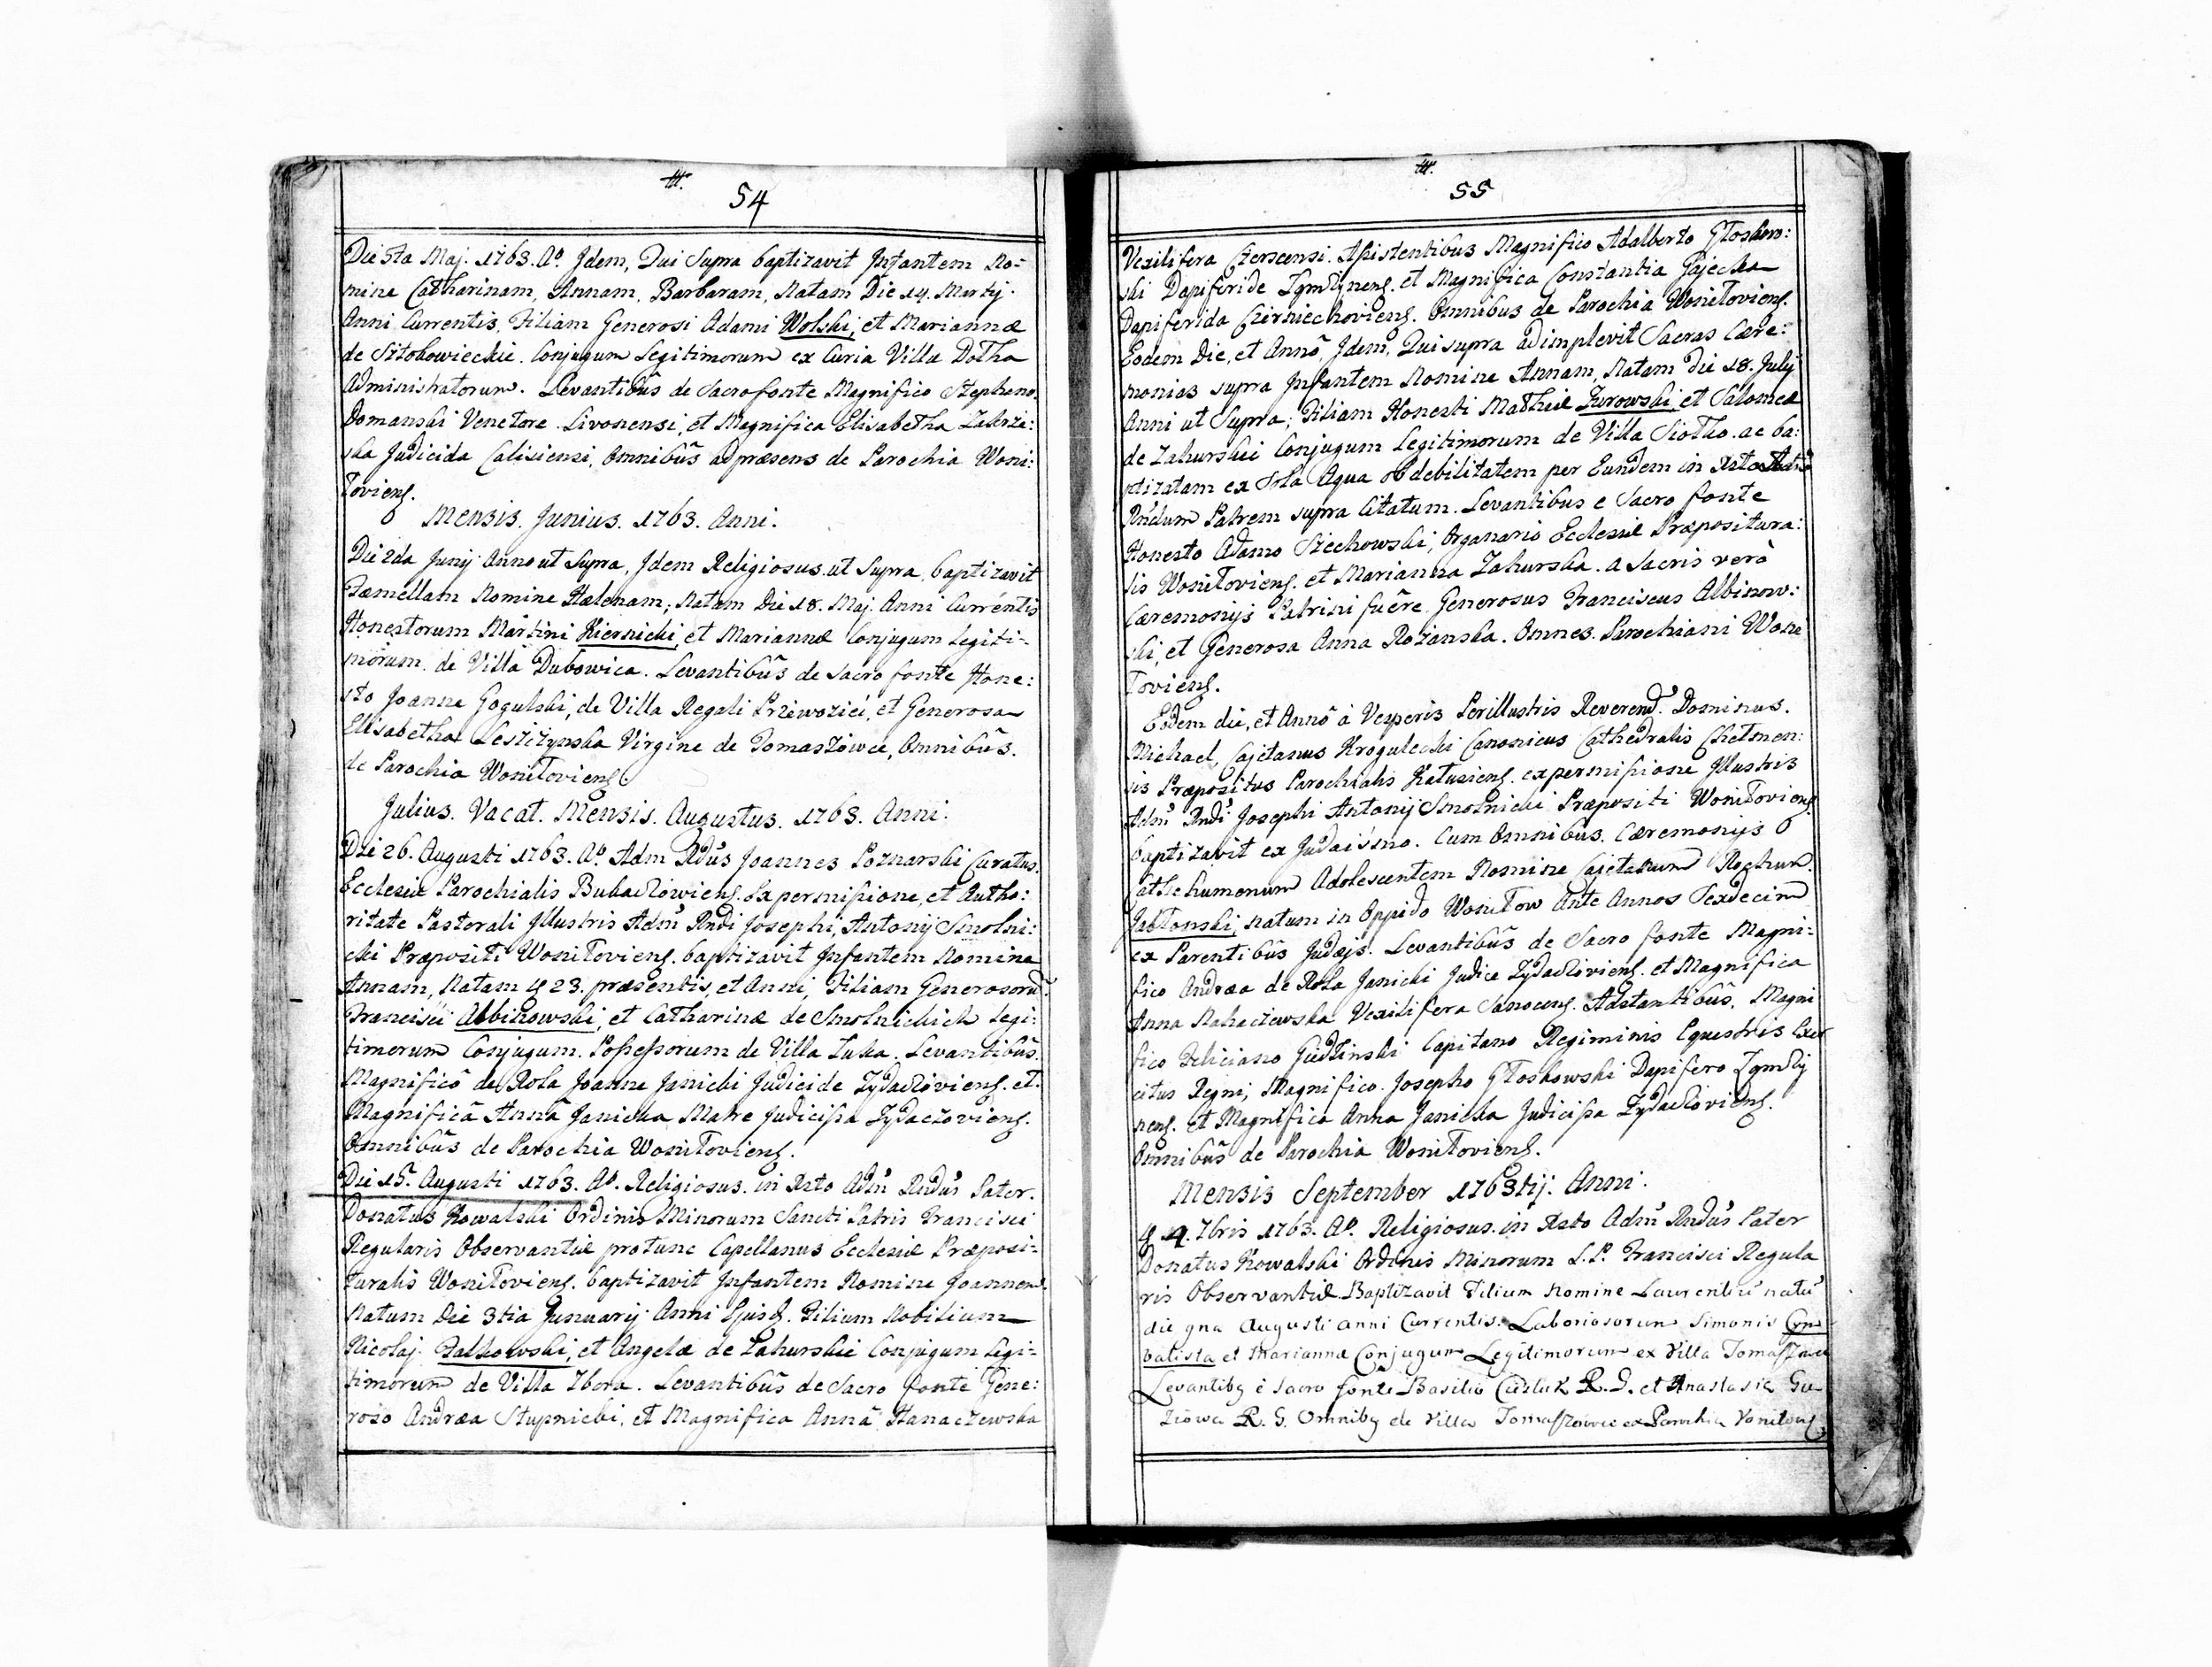 54
Die 5ta Maj. 1763. Ao. Jdem, Qui Supra baptizavit Jnfantem No=
mine Catharinam, Annam, Barbaram, Natam Die 14. Martij.
Anni Currentis, Filiam Generosi Adami Wolski, et Mariannæ
de Sztokowieckie. Conjugum Legitimorum ex Curia Villæ Dołha
Administratorum. Levantibûs de Sacro fonte Magnifico Stephano
Domanski Venatore Livonensi, et Magnifica Elisabetha Zakrze:
ska Judicida Calisiensi, Omnibûs ad præsens de Parochia Woni:
łoviens.
Mensis. Junius. 1763. Anni.
Die 2da Junij Anno ut Supra, Jdem Religiosus ut Supra, baptizavit
Fæmellam Nomine Halenam, Natam Die 18. Maj. Anni Currentis
Honestorum Martini Kiernicki, et Mariannæ Conjugum Legiti=
morum. de Villa Dubowica. Levantibûs de Sacro fonte Hone:
sto Joanne Gogulski, de Villa Regali Przewoziei, et Generosa
Elisabetha Leszczynska Virgine de Tomaszowce, Omnibûs.
de Parochia Woniłoviens.
Julius. Vacat. Mensis. Augustus. 1763. Anni.
Die 26. Augusti 1763. Ao. Adm Rdûs Joannes Poznarski Curatus.
Ecclesiæ Parochialis Bukaczowiens. Ex permissione, et Autho:
ritate Pastorali Jllustris Adm Rndi Josephi, Antonij Smolni:
cki Præpositi Woniłoviens. baptizavit Jnfantem Nomine
Annam, Natam 23. præsentis, et Anni, Filiam Generosorum
Francisci Albinowski, et Catharinæ de Smolnickich Legi:
timorum Conjugum. Possessorum de Villa Luka. Levantibûs.
Magnificô de Rola Joanne Janicki Judicide Zydaczoviens. et
Magnificâ Annâ Janicka Matre Judicissa Zydaczoviens.
Omnibûs de Parochia Woniłoviens.
Die 15. Augusti 1763. Ao. Religiosus. in Xsto Adm Rndus Pater.
Donatus Kowalski Ordinis Minorum Sancti Patris Francisci
Regularis Observantiæ protunc Capellanus Ecclesiæ Præposi=
turalis Woniłoviens. baptizavit Jnfantem Nomine Joannem.
Natum Die 3tia Januarij Anni Ejusd. Filium Nobilium
Nicolaj Falkowski, et Angelæ de Zahurskie Conjugum Legi=
timorum de Villa Zbora. Levantibûs de Sacro fonte Gene:
roso Andræa Stupnicki, et Magnifica Annâ Hanaczewska
55
Vexilifera Czerscensi. Assistentibus Magnifico Adalberto Głoskow:
ski Dapiferide et Magnifica Constantia Gajecka
Dapiferida Czerniechoviens. Omnibus de Parochia Woniłoviens.
Eodem Die, et Annô, Jdem, Qui supra adimplevit Sacras Cære:
monias supra Jnfantem Nomine Annam, Natam Die 18. Julij
Anni ut Supra; Filiam Honesti Mathiæ Zurowski, et Salomeæ
de Zahurskie Conjugum Legitimorum de Villa Siołko. ac ba:
ptizatam ex Sola Aqua ob debilitatem per Eundem in Xsto
Rndum Patrem supra Citatum. Levantibus e Sacro fonte
Honesto Adamo Siechowski, Organario Ecclesiæ Præpositura:
lis Woniłoviens. et Marianna Zahurska. a Sacris verò
Cæremonijs Patrini fuêre Generosus Franciscus Albinow:
ski, et Generosa Anna Rozanska. Omnes. Parochiani Woni
łoviens.
Eodem die, et Annô à Vesperis Perillustris Reverend. Dominus.
Michael, Cajetanus Krogulecki Canonicus Cathedralis Chełmen:
sis Præpositus Parochialis Kałusiens. ex permissione Jllustris
Adm Rndi Josephi Antonij Smolnicki Præpositi Woniłoviens.
baptizavit ex Judaismo. Cum Omnibus. Cæremonijs
Cathehumenum Adolescentem Nomine Cajetanum Rochum.
Jabłonski, natum in Oppido Woniłow Ante Annos Sexdecim
ex Parentibûs Judæjs. Levantibûs de Sacro fonte Magni=
fico Andræa de Rola Janicki Judice Zydaczoviens. et Magnifica
Anna Vexilifera Sanocens. Adstantibûs. Magni
fico Feliciano Giedzinski Capitano Regiminis Equestris Exer
citus Regni, Magnifico. Josepho Głoskowski Dapifero
nens. Et Magnifica Anna Janicka Judicissa Zydaczoviens.
Omnibûs de Parochia Woniłoviens.
Mensis September 1763tij. Anni.
4. 7bris 1763. Ao. Religiosus. in Xsto Adm Rndus Pater
Donatus Kowalski Ordinis Minorum S. P. Francisci Regula
ris Observantiæ Baptizavit Filium Nomine Laurentiu natu
die 9na Augusti anni Currentis. Laboriosorum Simonis Cym
balista et Mariannæ Conjugum Legitimorum ex Villa
Levantibq è Sacro fonte Basilio R. G. et Anastasia
R. G. Omnibq de Villa ex Parochia